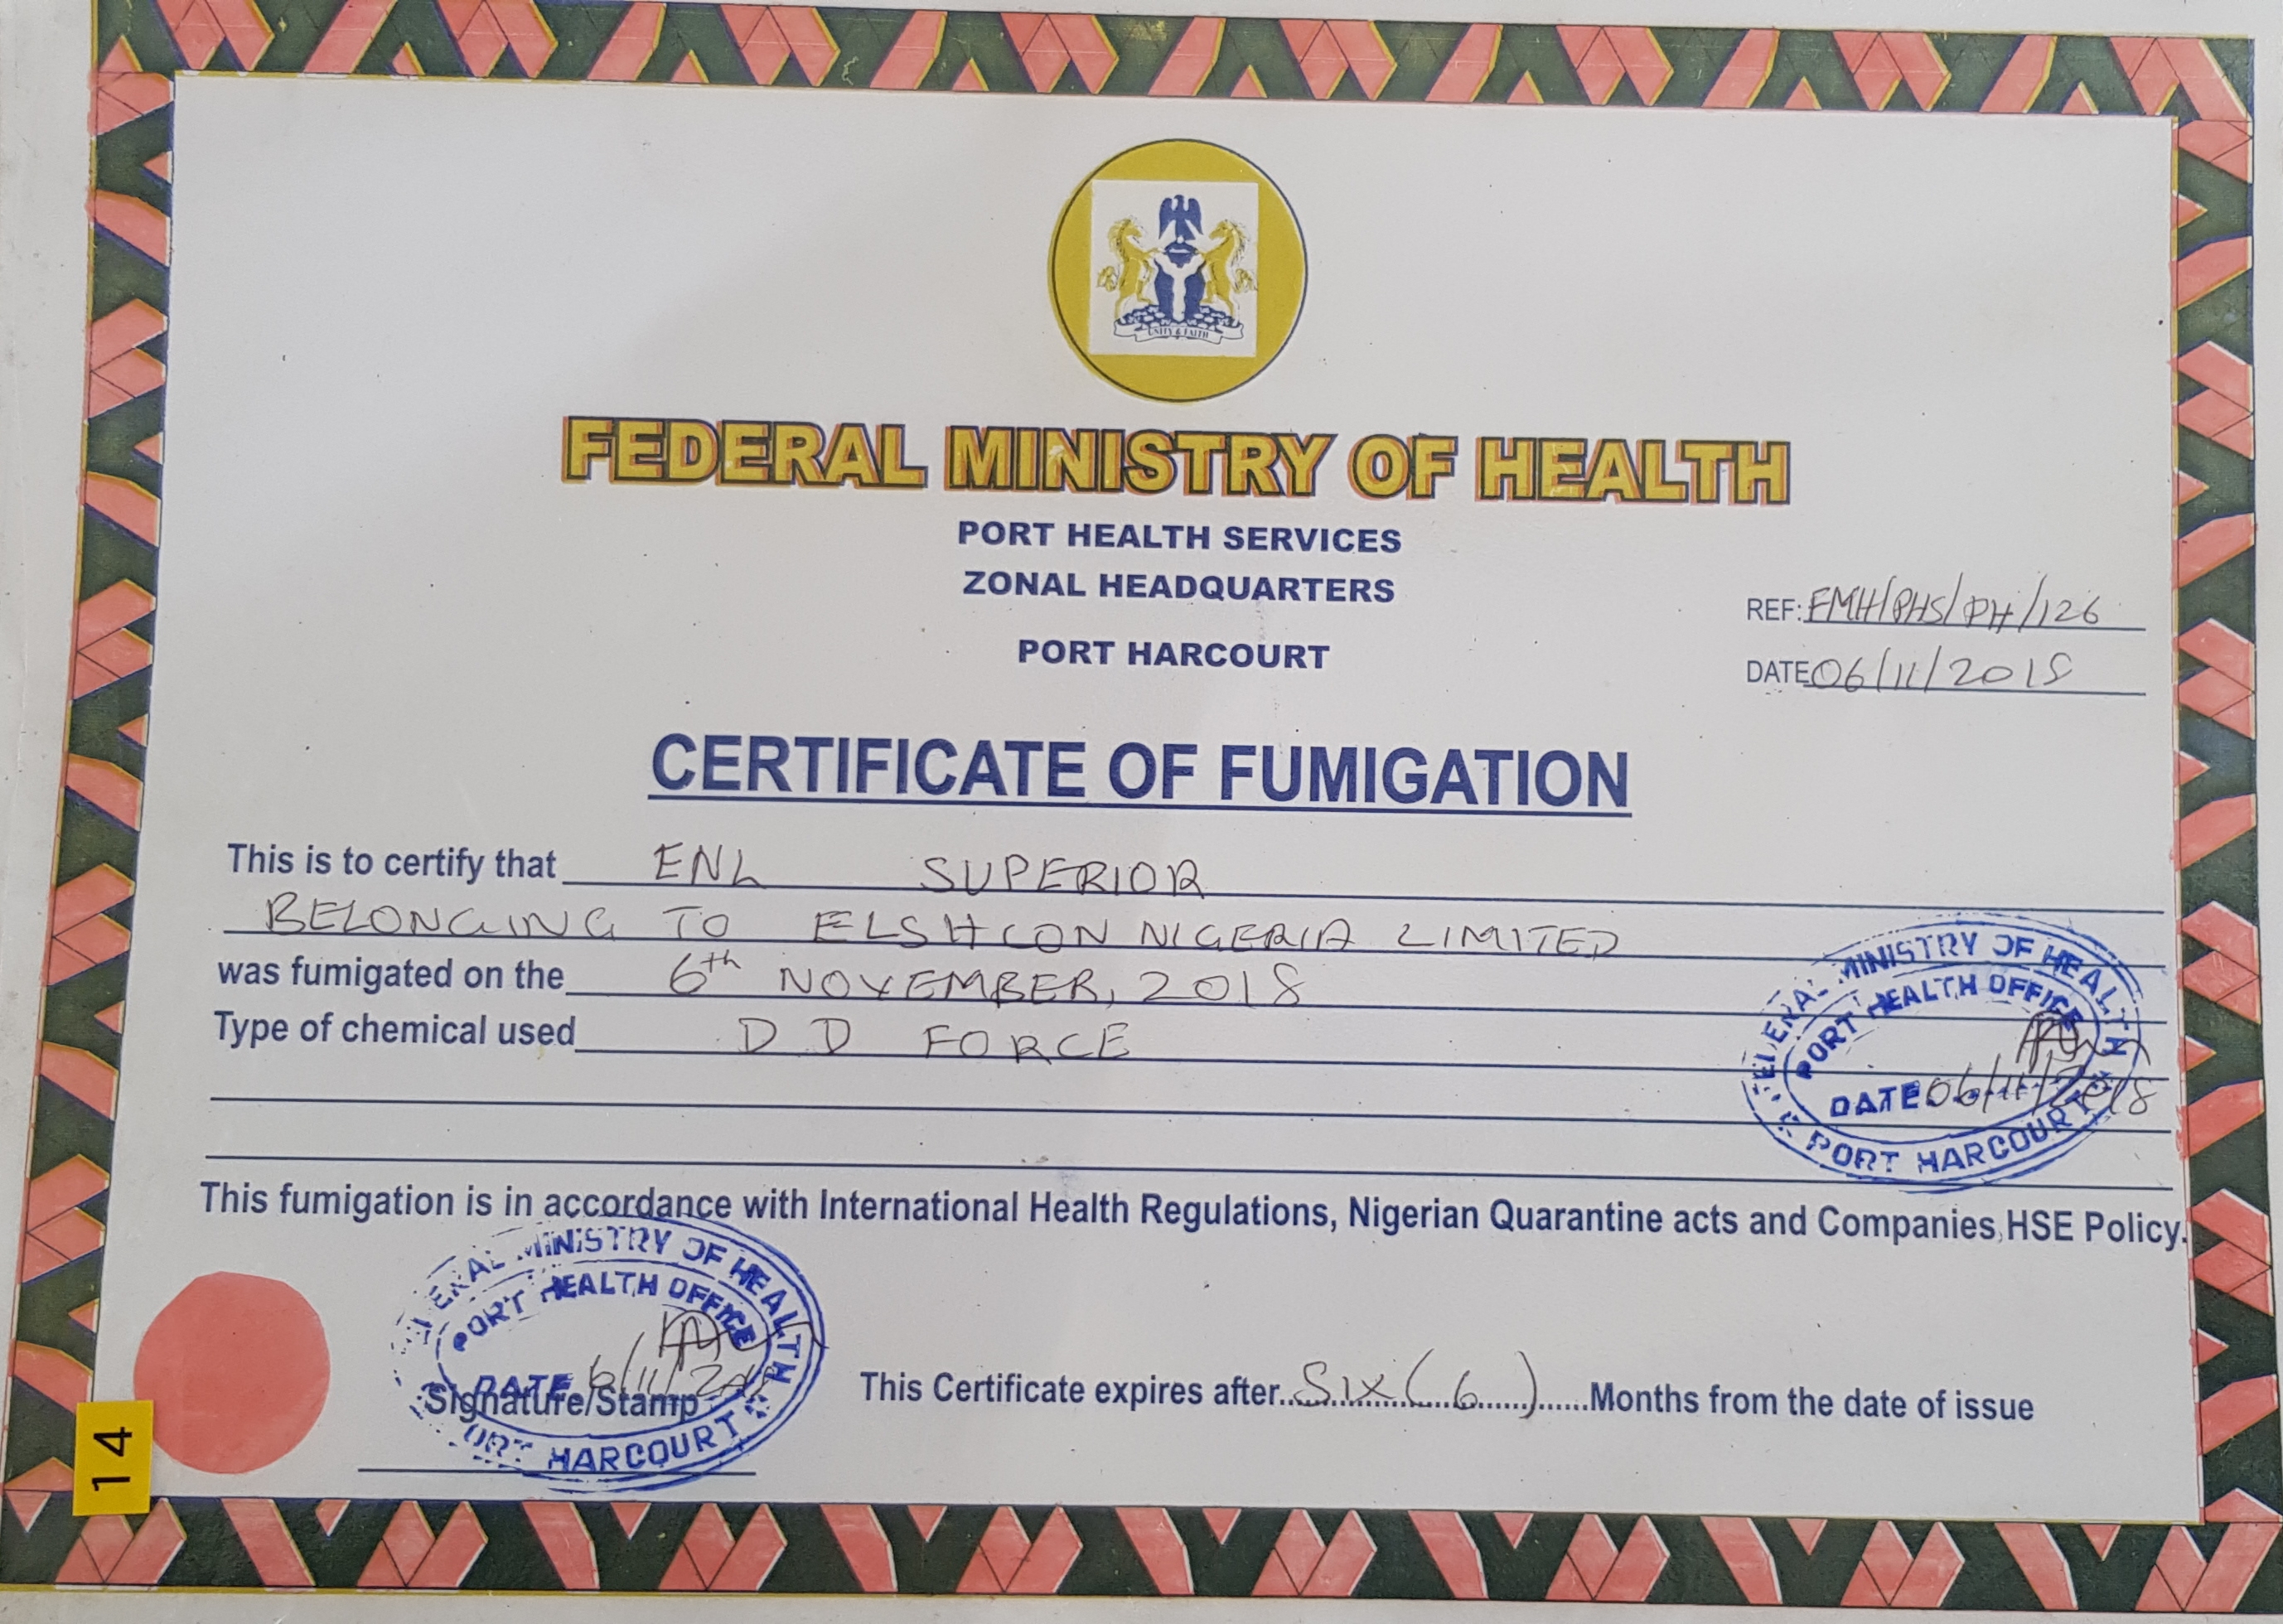 UNITY & FAITH
FEDERAL MINISTRY OF HEALTH
PORT HEALTH SERVICES
ZONAL HEADQUARTERS
PORT HARCOURT
REF: FMH/PHS/PH/126
DATE 06/11/2018
CERTIFICATE OF FUMIGATION
This is to certify that ENL SUPERIOR
BELONGING TO ELSHCON NIGERIA LIMITED
was fumigated on the 6th NOVEMBER, 2018
Type of chemical used D D FORCE
FEDERAL MINISTRY OF HEALTH
PORT HEALTH OFFICE
DATE 06/11/2018
PORT HARCOURT
This fumigation is in accordance with International Health Regulations, Nigerian Quarantine acts and Companies, HSE Policy.
FEDERAL MINISTRY OF HEALTH
PORT HEALTH OFFICE
DATE 6/11/2018
Signature/Stamp
PORT HARCOURT
This Certificate expires after Six (6) Months from the date of issue
14